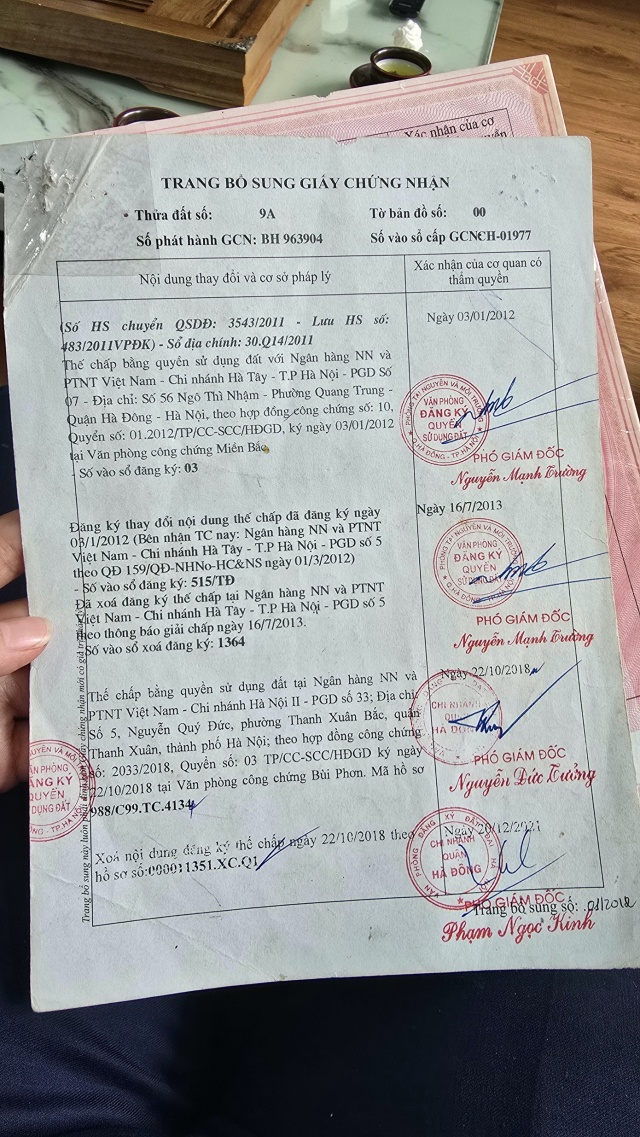 Xác nhận của cơ
TRANG BỔ SUNG GIẤY CHỨNG NHẬN
Thửa đất số: 9A Tờ bản đồ số: 00
Số phát hành GCN: BH 963904 Số vào sổ cấp GCN:CH-01977
Nội dung thay đổi và cơ sở pháp lý
Xác nhận của cơ quan có
thẩm quyền
(Số HS chuyển QSDĐ: 3543/2011 - Lưu HS số:
483/2011VPĐK) - Sổ địa chính: 30.Q14/2011
Thế chấp bằng quyền sử dụng đất với Ngân hàng NN và
PTNT Việt Nam - Chi nhánh Hà Tây - T.P Hà Nội - PGD Số
07 - Địa chỉ: Số 56 Ngô Thì Nhậm - Phường Quang Trung -
Quận Hà Đông - Hà Nội, theo hợp đồng công chứng số: 10,
Quyển số: 01.2012/TP/CC-SCC/HĐGD, ký ngày 03/01/2012
tại Văn phòng công chứng Miền Bắc.
- Số vào sổ đăng ký: 03
Ngày 03/01/2012
PHÒNG TÀI NGUYÊN VÀ MÔI TRƯỜNG
VĂN PHÒNG
ĐĂNG KÝ
QUYỀN
SỬ DỤNG ĐẤT
Q.HÀ ĐÔNG - TP.HÀ NỘI
PHÓ GIÁM ĐỐC
Nguyễn Mạnh Trường
Đăng ký thay đổi nội dung thế chấp đã đăng ký ngày
03/1/2012 (Bên nhận TC nay: Ngân hàng NN và PTNT
Việt Nam - Chi nhánh Hà Tây - T.P Hà Nội - PGD số 5
theo QĐ 159/QĐ-NHNo-HC&NS ngày 01/3/2012)
- Số vào sổ đăng ký: 515/TĐ
Đã xoá đăng ký thế chấp tại Ngân hàng NN và PTNT
Việt Nam - Chi nhánh Hà Tây - T.P Hà Nội - PGD số 5
theo thông báo giải chấp ngày 16/7/2013.
Số vào sổ xoá đăng ký: 1364
Ngày 16/7/2013
PHÒNG TÀI NGUYÊN VÀ MÔI TRƯỜNG
VĂN PHÒNG
ĐĂNG KÝ
QUYỀN
SỬ DỤNG ĐẤT
Q.HÀ ĐÔNG - TP.HÀ NỘI
PHÓ GIÁM ĐỐC
Nguyễn Mạnh Trường
Thế chấp bằng quyền sử dụng đất tại Ngân hàng NN và
PTNT Việt Nam - Chi nhánh Hà Nội II - PGD số 33; Địa chỉ:
Số 5, Nguyễn Quý Đức, phường Thanh Xuân Bắc, quận
Thanh Xuân, thành phố Hà Nội; theo hợp đồng công chứng
số: 2033/2018, Quyển số: 03 TP/CC-SCC/HĐGD ký ngày
22/10/2018 tại Văn phòng công chứng Bùi Phơn. Mã hồ sơ
988/C99.TC.4134
Ngày 22/10/2018
CHI NHÁNH
QUẬN
HÀ ĐÔNG
PHÓ GIÁM ĐỐC
Nguyễn Đức Tưởng
VĂN PHÒNG
ĐĂNG KÝ
QUYỀN
SỬ DỤNG ĐẤT
Trang bổ sung này luôn phải đính kèm giấy chứng nhận mới có giá trị pháp lý
Xoá nội dung đăng ký thế chấp ngày 22/10/2018 theo
hồ sơ số:000031351.XC.Q1
Ngày 20/12/2021
VĂN PHÒNG ĐĂNG KÝ ĐẤT ĐAI HÀ NỘI
CHI NHÁNH
QUẬN
HÀ ĐÔNG
Trang bổ sung số: 01/2012
PHÓ GIÁM ĐỐC
Phạm Ngọc Kinh